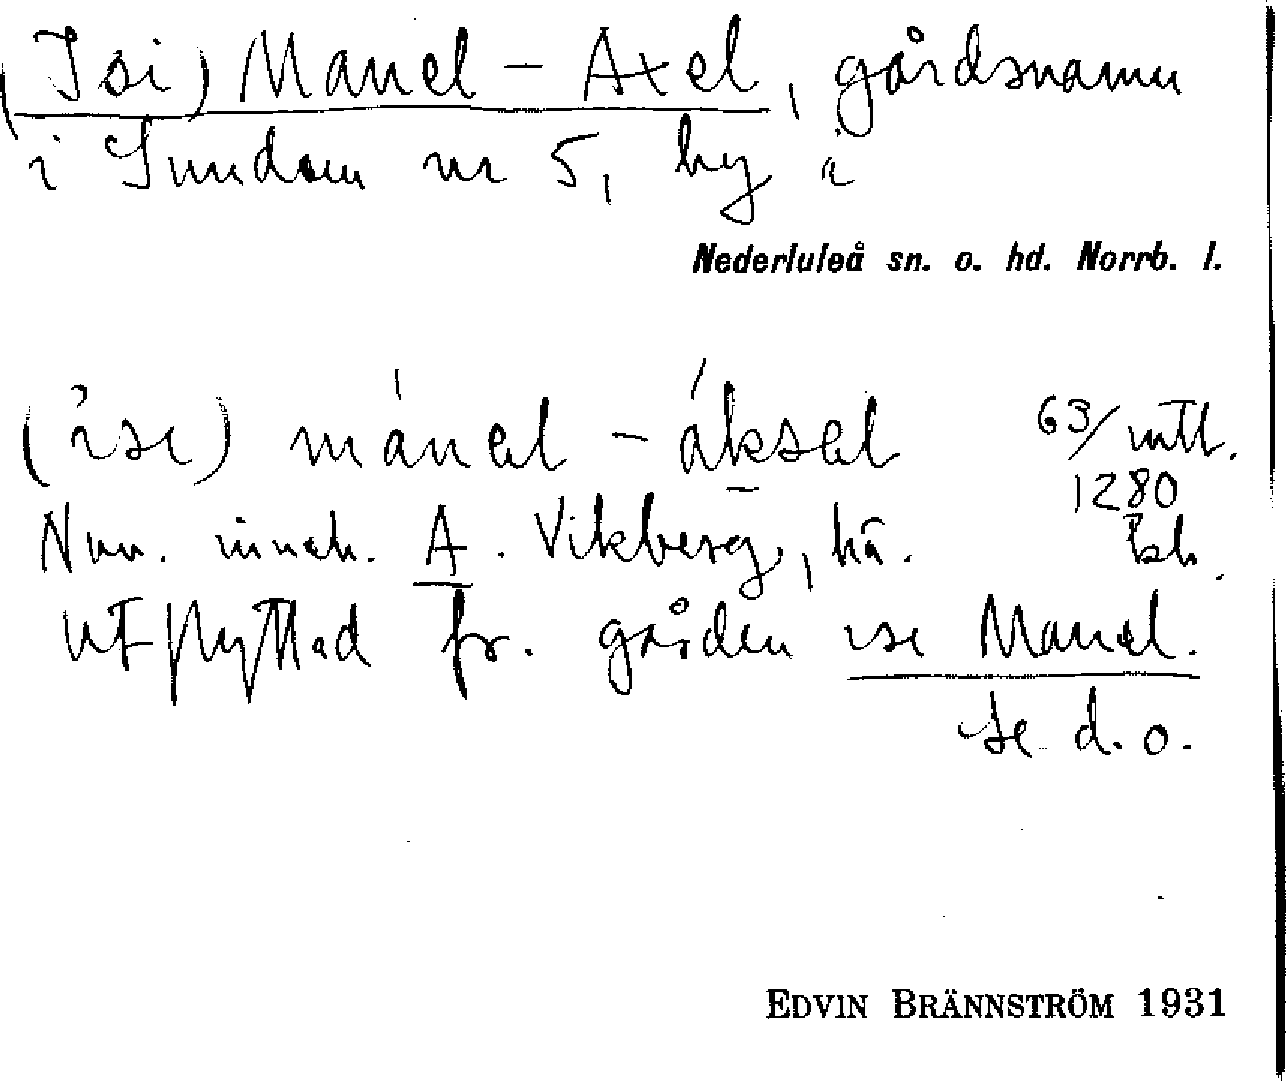 (Isi) Manel-Axel, gårdsnamn
i Sundom nr 5, by i
Nederluleå sn. o. hd. Norrb. l.
(ise) mánel-áksel 63/ mtl.
1280
Nuv. inneh. A. Vikberg, hä.
utflyttad fr. gården ise Manel.
se d. o.
EDVIN BRÄNNSTRÖM 1931